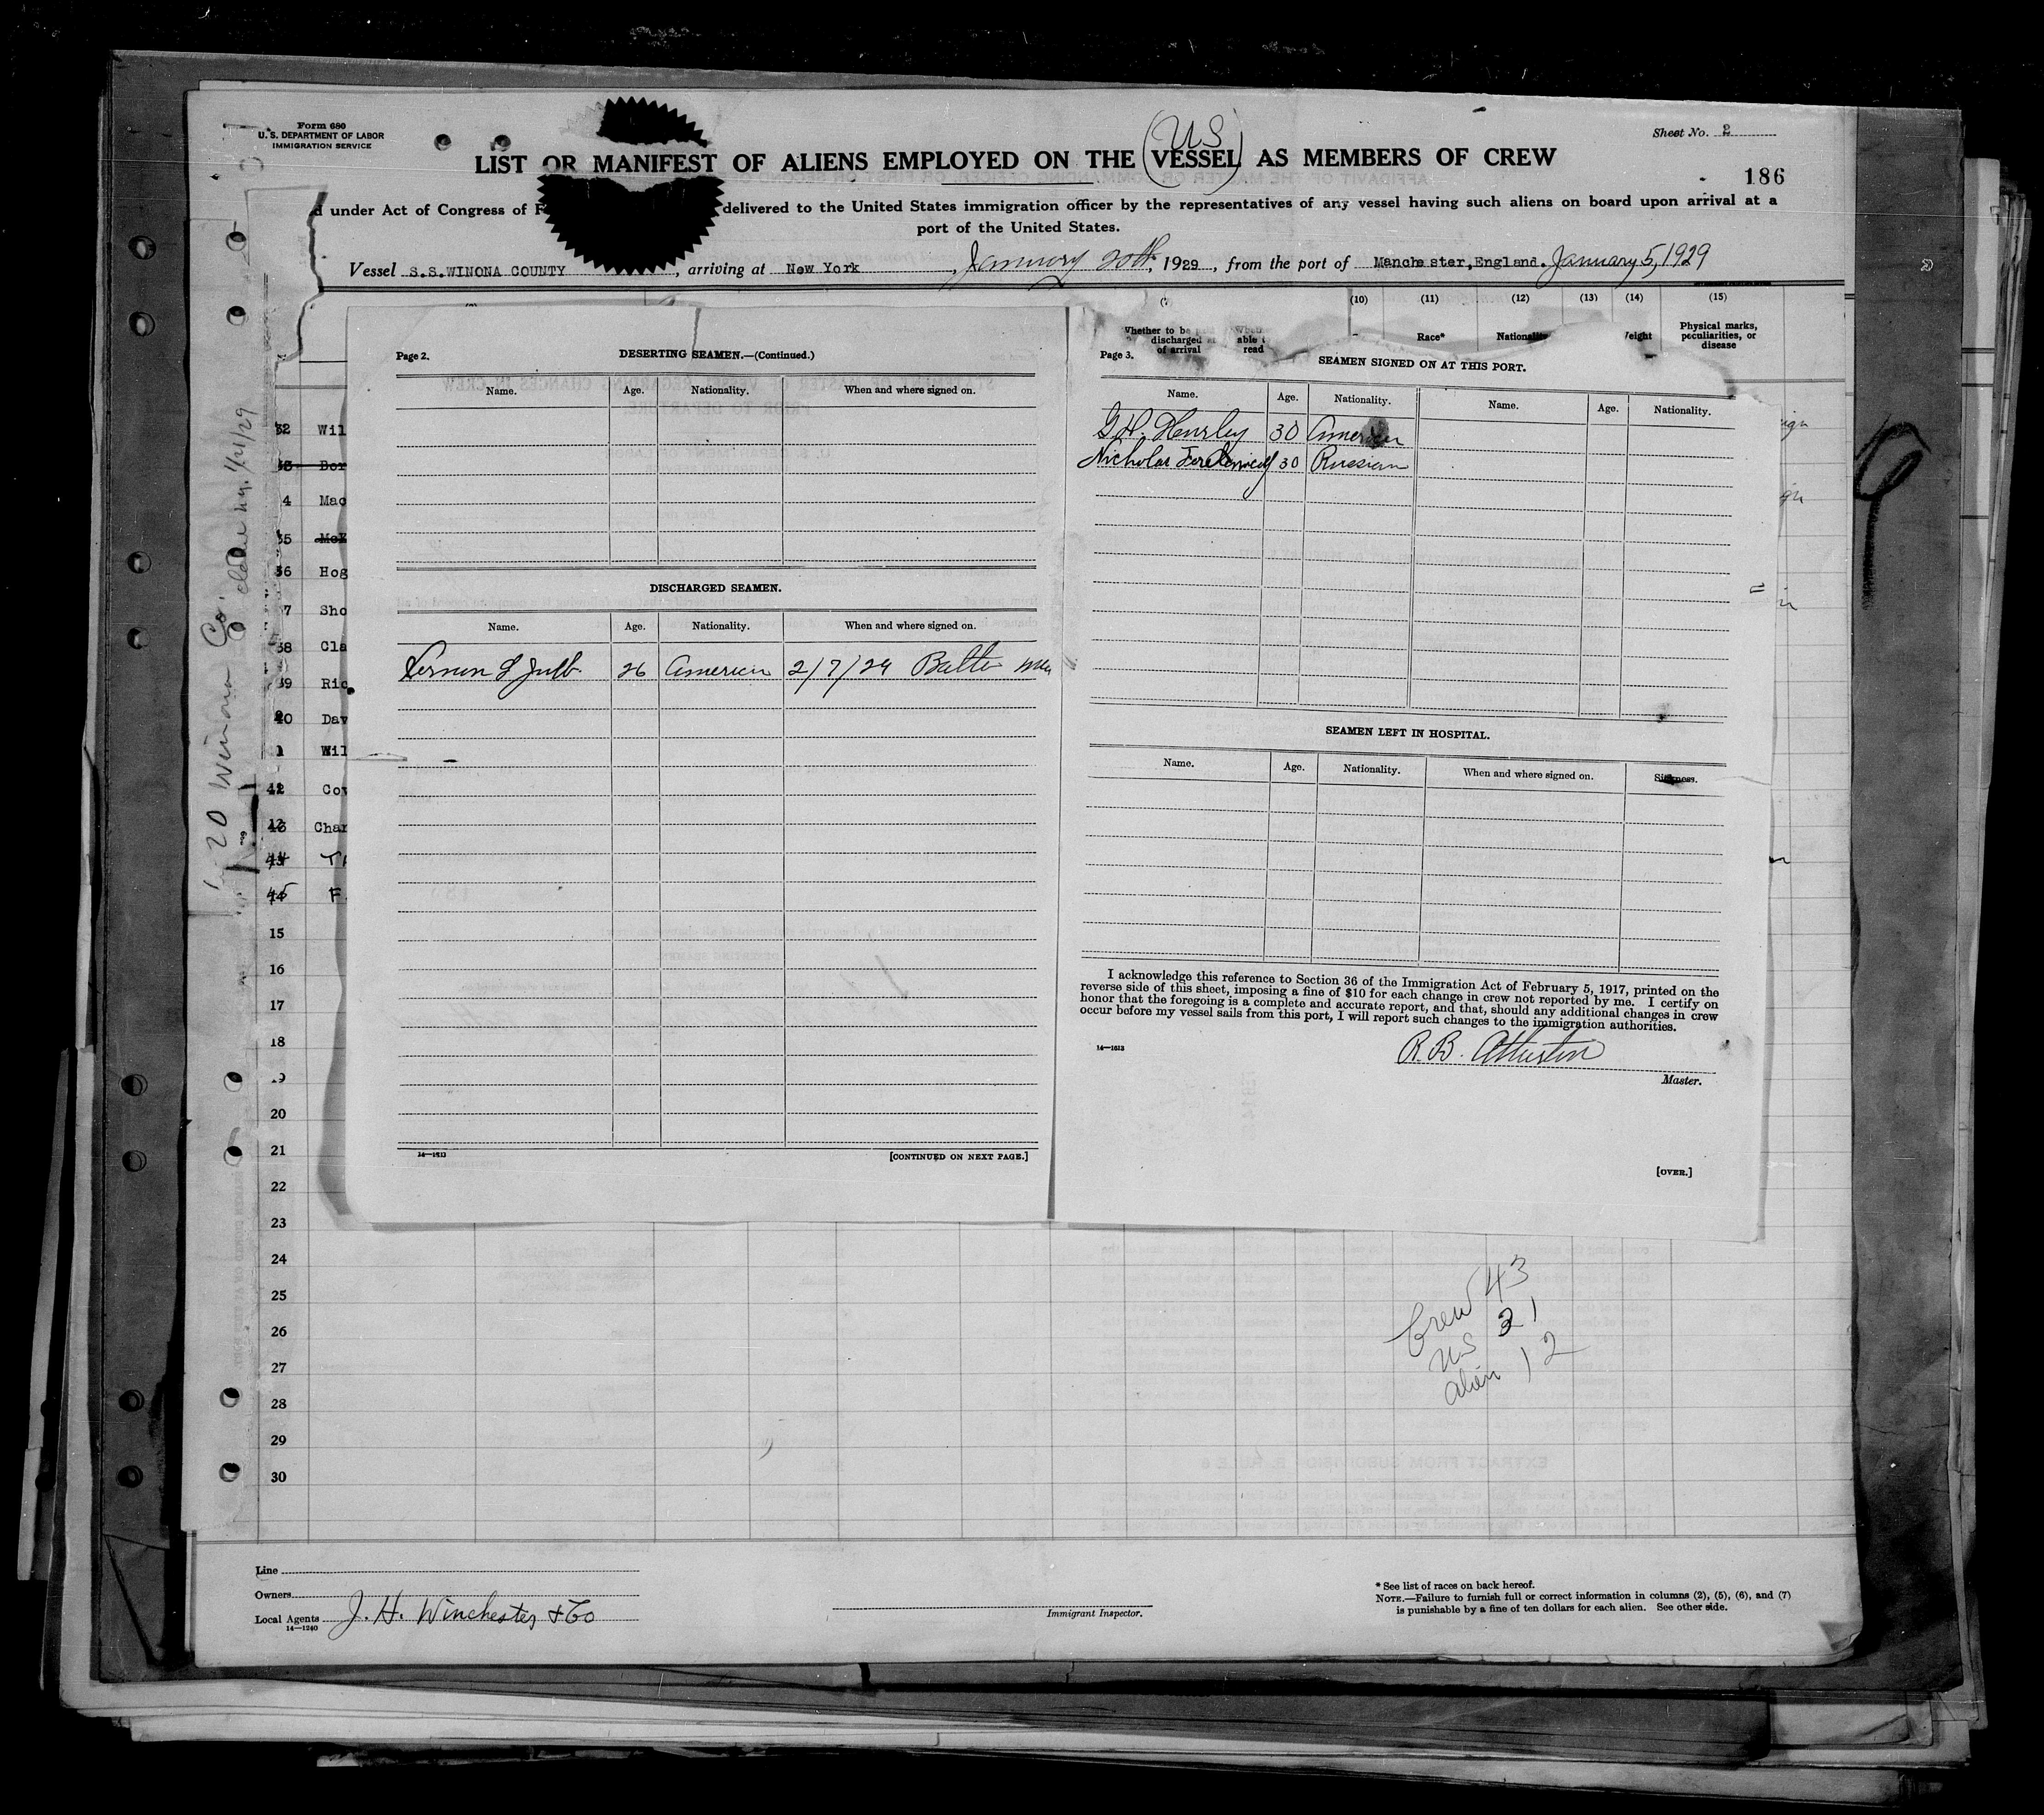 Form 680
U. S. DEPARTMENT OF LABOR
IMMIGRATION SERVICE
Sheet No. 2
(US)
LIST OR MANIFEST OF ALIENS EMPLOYED ON THE VESSEL AS MEMBERS OF CREW
186
under Act of Congress of delivered to the United States immigration officer by the representatives of any vessel having such aliens on board upon arrival at a
port of the United States.
Vessel S.S.WINONA COUNTY, arriving at New York, January 20th, 1929, from the port of Manchester, England. January 5, 1929
(10) (11) (12) (13) (14) (15)
Whether to be discharged of arrival
read
Race*
Physical marks, peculiarities, or disease
Page 2.
DESERTING SEAMEN.—(Continued.)
Name. Age. Nationality. When and where signed on.
DISCHARGED SEAMEN.
Name. Age. Nationality. When and where signed on.
26 American 2/7/29 Balto
14—1613
[CONTINUED ON NEXT PAGE.]
Page 3.
SEAMEN SIGNED ON AT THIS PORT.
Name. Age. Nationality. Name. Age. Nationality.
G.H. Hensley 30 American
Nicholas 30 Russian
SEAMEN LEFT IN HOSPITAL.
Name. Age. Nationality. When and where signed on. Sickness.
I acknowledge this reference to Section 36 of the Immigration Act of February 5, 1917, printed on the
reverse side of this sheet, imposing a fine of $10 for each change in crew not reported by me. I certify on
honor that the foregoing is a complete and accurate report, and that, should any additional changes in crew
occur before my vessel sails from this port, I will report such changes to the immigration authorities.
14—1613
R. B.
Master.
[OVER.]
1/20 Winona Co.
1/21/29
32 Wil
Bor
4 Mac
35
36 Hog
7 Sho
38 Cla
39 Ric
40 Dav
Wil
42 Cov
Char
44
45 F
15
16
17
18
19
20
21
22
23
24
25
26
27
28
29
30
Crew 43
US 31
alien 12
Line
Owners
Local Agents J. H. Winchester & Co
14—1240
Immigrant Inspector.
* See list of races on back hereof.
NOTE.—Failure to furnish full or correct information in columns (2), (5), (6), and (7)
is punishable by a fine of ten dollars for each alien. See other side.